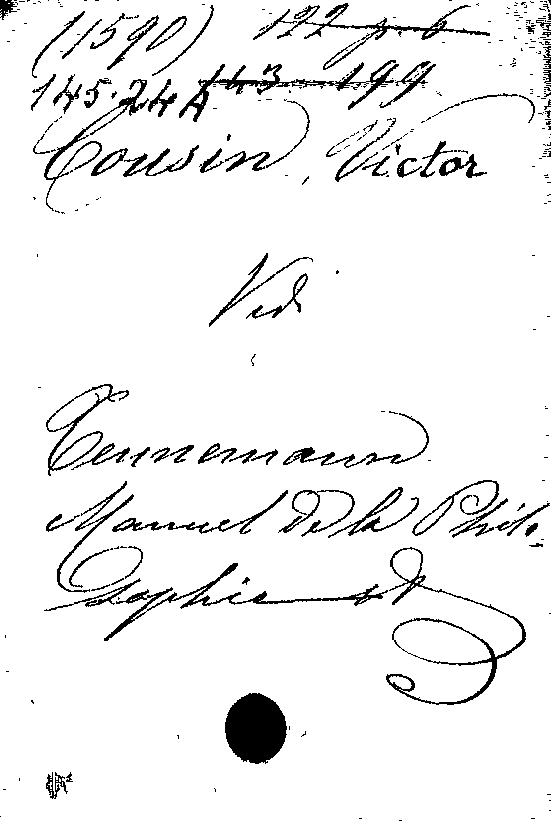 (1590) 122 p. 6
145.24A 143 199
Cousin, Victor
Vidi
Tennemann
Manuel de la Philo
sophie